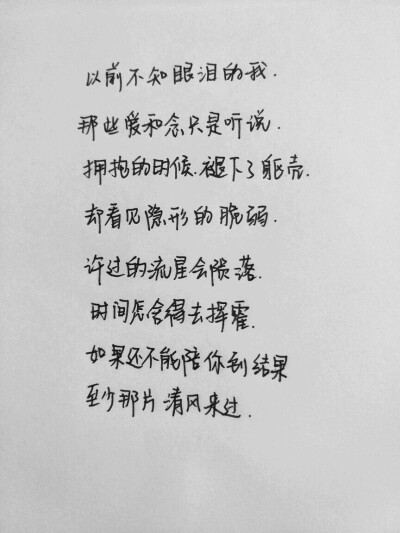 以前不知眼泪的我.
那些爱和念只是听说.
拥抱的时候.褪下了躯壳.
却看见隐形的脆弱.
许过的流星会陨落.
时间怎舍得去挥霍.
如果还不能陪你到结果
至少那片清风来过.